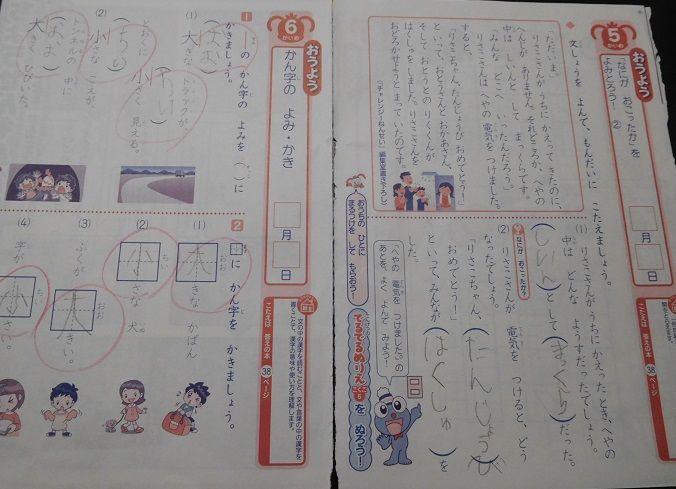 おうよう
5
かいめ
「なにが おこったか」を
よみとろう! ②
月
日
こたえは 答えの本 38ページ
文しょうを よんで、もんだいに こたえましょう。
「ただいま。」
りさこさんが うちに かえって きたのに、
へんじが ありません。それどころか、へやの
中は しいんと して まっくらです。
「みんな どこへ いったんだろう。」
りさこさんは へやの 電気を つけました。
すると、
「りさこちゃん、たんじょうび おめでとう!」
といって、おとうさんと おかあさん、
そして おとうとの りくくんが
はくしゅを しました。りさこさんを
おどろかせようと まっていたのです。
(「チャレンジ1ねんせい」編集室書き下ろし)
(1) りさこさんが うちに かえった とき、へやの
中は どんな ようすだったでしょう。
(しいん)と して(まっくら)だった。
なにが おこったか?
(2) りさこさんが 電気を つけると、どう
なったでしょう。
「りさこちゃん、(たんじょうび)
おめでとう!」
といって、みんなが(はくしゅ)を
した。
「へやの 電気を つけました」の
あとを、よく よんで みよう!
おうちの ひとに
まるつけを して もらおう!
てるてるぬりえ こくご5 を ぬろう!
おうよう
6
かいめ
かん字の よみ・かき
月
日
こたえは 答えの本 38ページ
文の中の漢字を読むことと、文や言葉の中の漢字を
書くことで、漢字の意味や使い方を理解します。
1 ―の かん字の よみを( )に
かきましょう。
(1) 大きな
(おお)
トラックが、
とおくに
小さく 見える。
(ちい)
(2) 小さな こえが、
(ちい)
トンネルの 中に
大きく ひびいた。
(おお)
2 □に かん字を かきましょう。
(1) 大きな かばん
おお
(2) 小さな 犬。
ちい
(3) ふくが 大きい。
おお
(4) 字が 小さい。